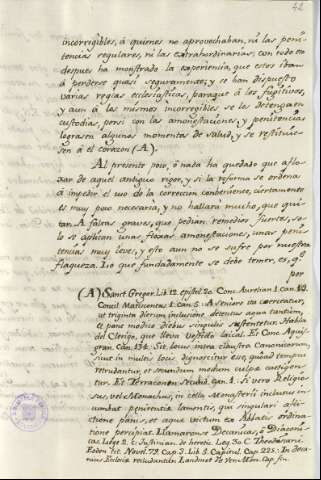 42
incorregibles, á quienes no aprovechaban, ni las peni-
tencias regulares, ni las extrahordinarias; con todo eso
despues ha monstrado la experiencia, que estos iban
á perderse quasi seguramente; y se han dispuesto
varias reglas ecclesiasticas, paraque á los fugitivos,
y aun á los mismos incorregibles se les detenga en
custodia, por si con las amonestaciones, y penitencias
lograsen algunos momentos de salud, y se restituie-
sen á el corazon (A).
Al presente poco, ó nada ha quedado que aflo-
xar de aquel antiguo rigor, y si la reforma se ordena
á impedir el uso de la correccion conveniente, ciertamente
es muy poco necesaria, y no hallará mucho, que qui-
tar. A faltas graves, que pedian remedios fuertes, so-
lo se aplican unas floxas amonestaciones, unas peni-
tencias muy leves, y esto aun no se sufre por nuestra
flaqueza. Lo que fundadamente se debe temer, es, q.e
por
(A) Sanct. Gregor. Lib. 12. epist. 30. Conc. Aurelian. 1. can.
Concil. Matiscontas 1. can. 5. A seniore ita coerceatur,
ut triginta dierum inclusione detentus aqua tantum,
et pane modico diebus singulis sustentetur. Habla
del Clerigo, que lleva vestido laical. El Conc. Aquis-
gran. can. 134. Sit locus intra claustra Canonicorum,
sicut in multis locis dignoscitur esse, quo ad tempus
retrudantur, et secundum modum culpæ castigen-
tur. El Terraconen. can. 1. Si vero Religio-
sus, vel Monachus, in cella Monasterii inclusus in-
cumbat penitentiæ lamentis, qui singulari afflic-
tione panis, et aquæ victum ex Abbatis ordina-
tione percipiat. Llamaronse Decanica, ó Diaconi-
cas. Lege 2. Justinian. de heretic. Leg. 30 C. Theodosiani.
Eodem tit. Novel. 79. Cap. 3. Lib. 5. Capitul. Cap. 225. In deca-
nias Ecclesiæ retrudentur.